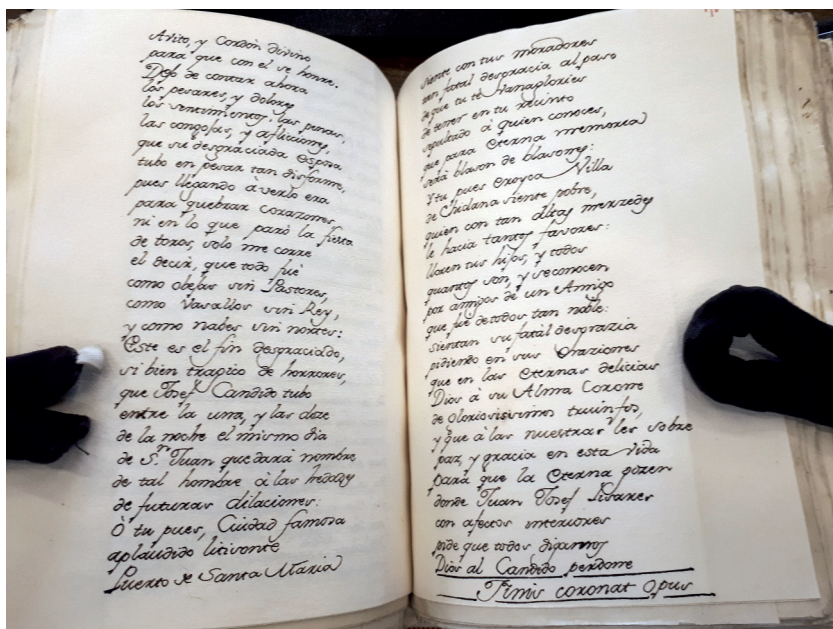 Avito, y Cordon divino
para que con el se honre.
Dejo de contar ahora
los pesares, y dolores
los sentimientos, las penas,
las congojas, y aflicciones,
que su desgraciada esposa
tubo en pesar tan disforme,
pues llegando à verlo era
para quebrar corazones
ni en lo que paró la fiesta
de toros, solo me corre
el decir, que todo fué
como obejas sin Pastores,
como Vasallos sin Rey,
y como nabes sin nortes:
Este es el fin desgraciado,
si bien trapico de horrores,
que Josef Candido tubo
entre la una, y las doze
de la noche el mismo dia
de Sn. Juan quedará nombre
de tal hombre à las hedades
de futuras dilaciones:
Ò tu pues, Ciudad famosa
aplaudido
Puerto de Santa Maria
siente con tus moradores
tan fatal desgracia al paso
de que tu te vanaglories
de tener en tu recinto
sepultado à quien conoces,
que para eterna memoria
será blason de blasones:
Y tu pues eroyca Villa
de Chiclana siente pobre,
quien con tan altas merzedes
le hacia tantos favores:
lloren tus hijos, y todos
quantos son, y se conocen
por amigos de un Amigo
que fué de todos tan noble:
sientan su fatal desgrazia
pidiendo en sus Oraziones
que en las eternas delicias
Dios à su Alma Corone
de gloriosisimos triunfos,
y que à las nuestras les sobre
paz, y gracia en esta vida
para que la eterna gozen
donde Juan Josef
con afectos interiores
pide que todos digamos
Dios al Candido perdone
Finis coronat Opus